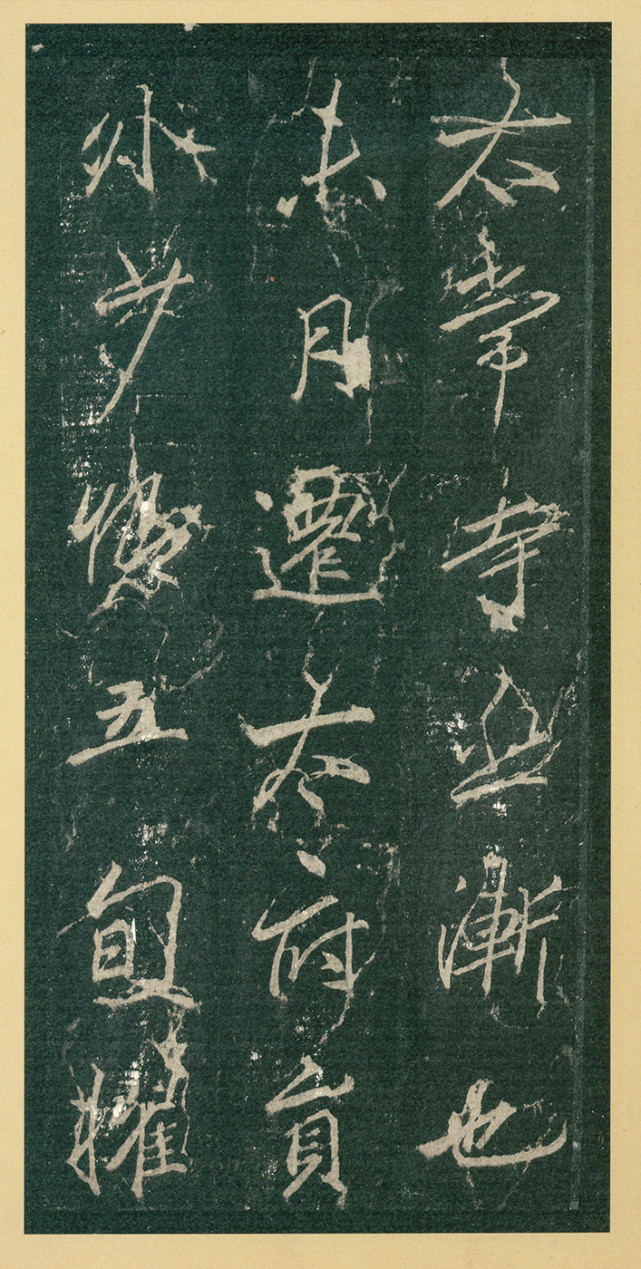 太常寺丞漸也
未月遷太府員
外少卿五旬擢